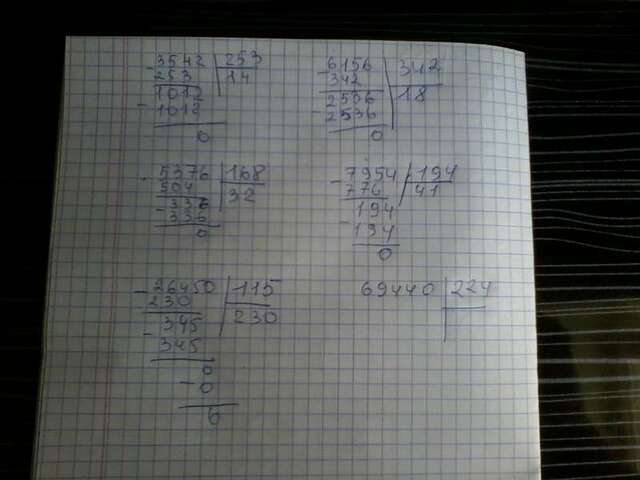 3542 253
253 14
1012
1012
0
6156 342
342 18
2536
2536
0
5376 168
504 32
336
336
0
7954 194
776 41
194
194
0
26450 115
230 230
345
345
0
0
0
69440 224